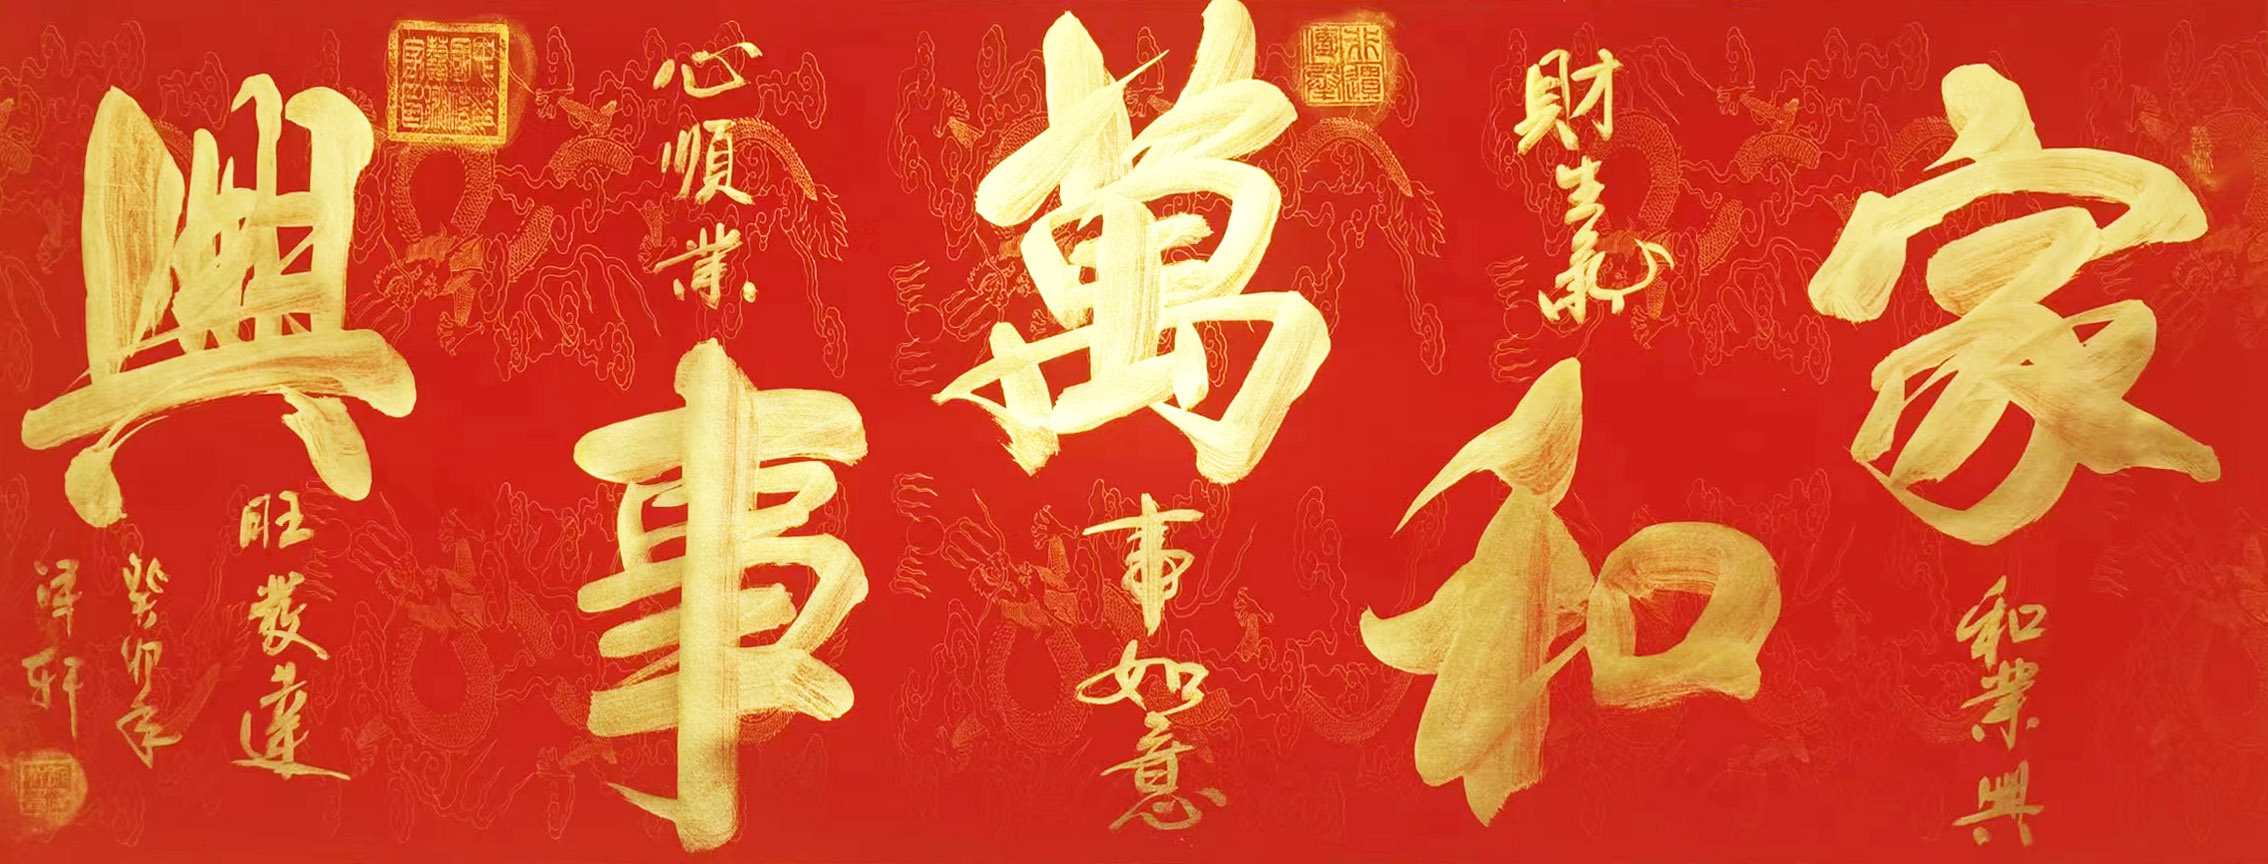 家
和業興
財生氣
和
萬
事如意
心順業
事
興
旺發達
癸卯年
澤軒